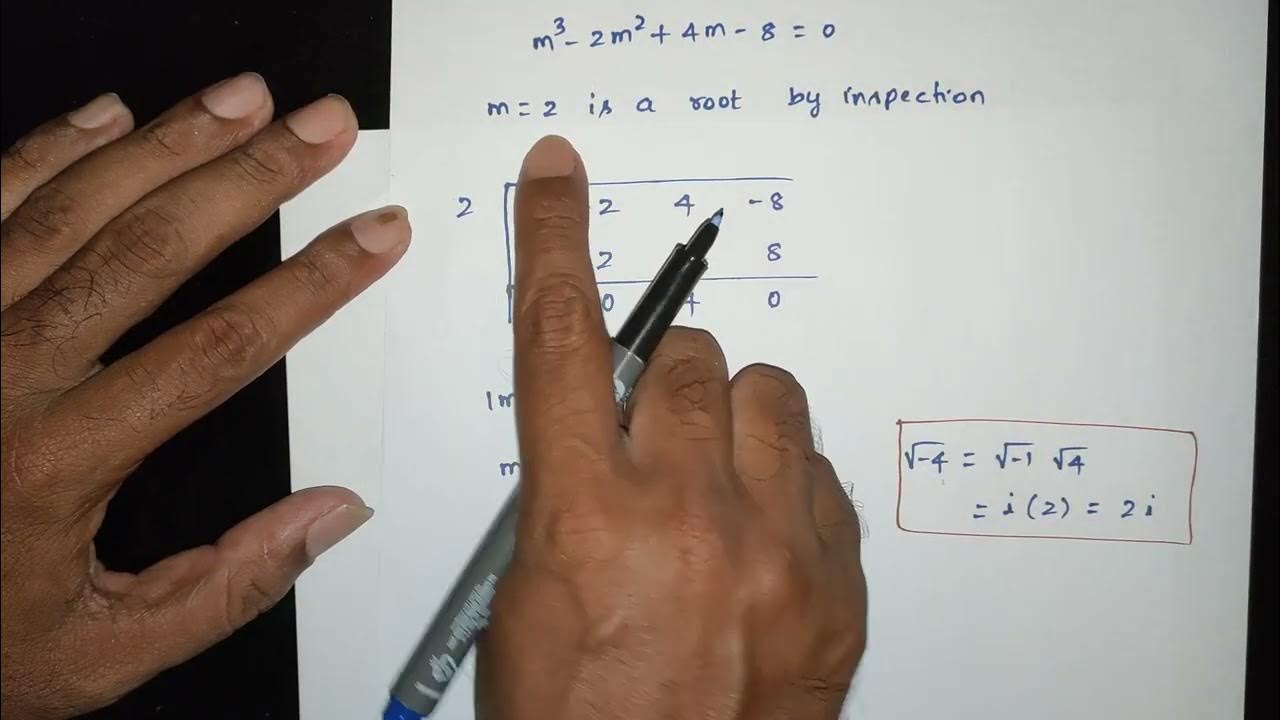 m³ - 2m² + 4m - 8 = 0
m = 2 is a root by inspection
2 2 4 -8
2 8
0 4 0
1m
m
√-4 = √-1 √4
= i (2) = 2i